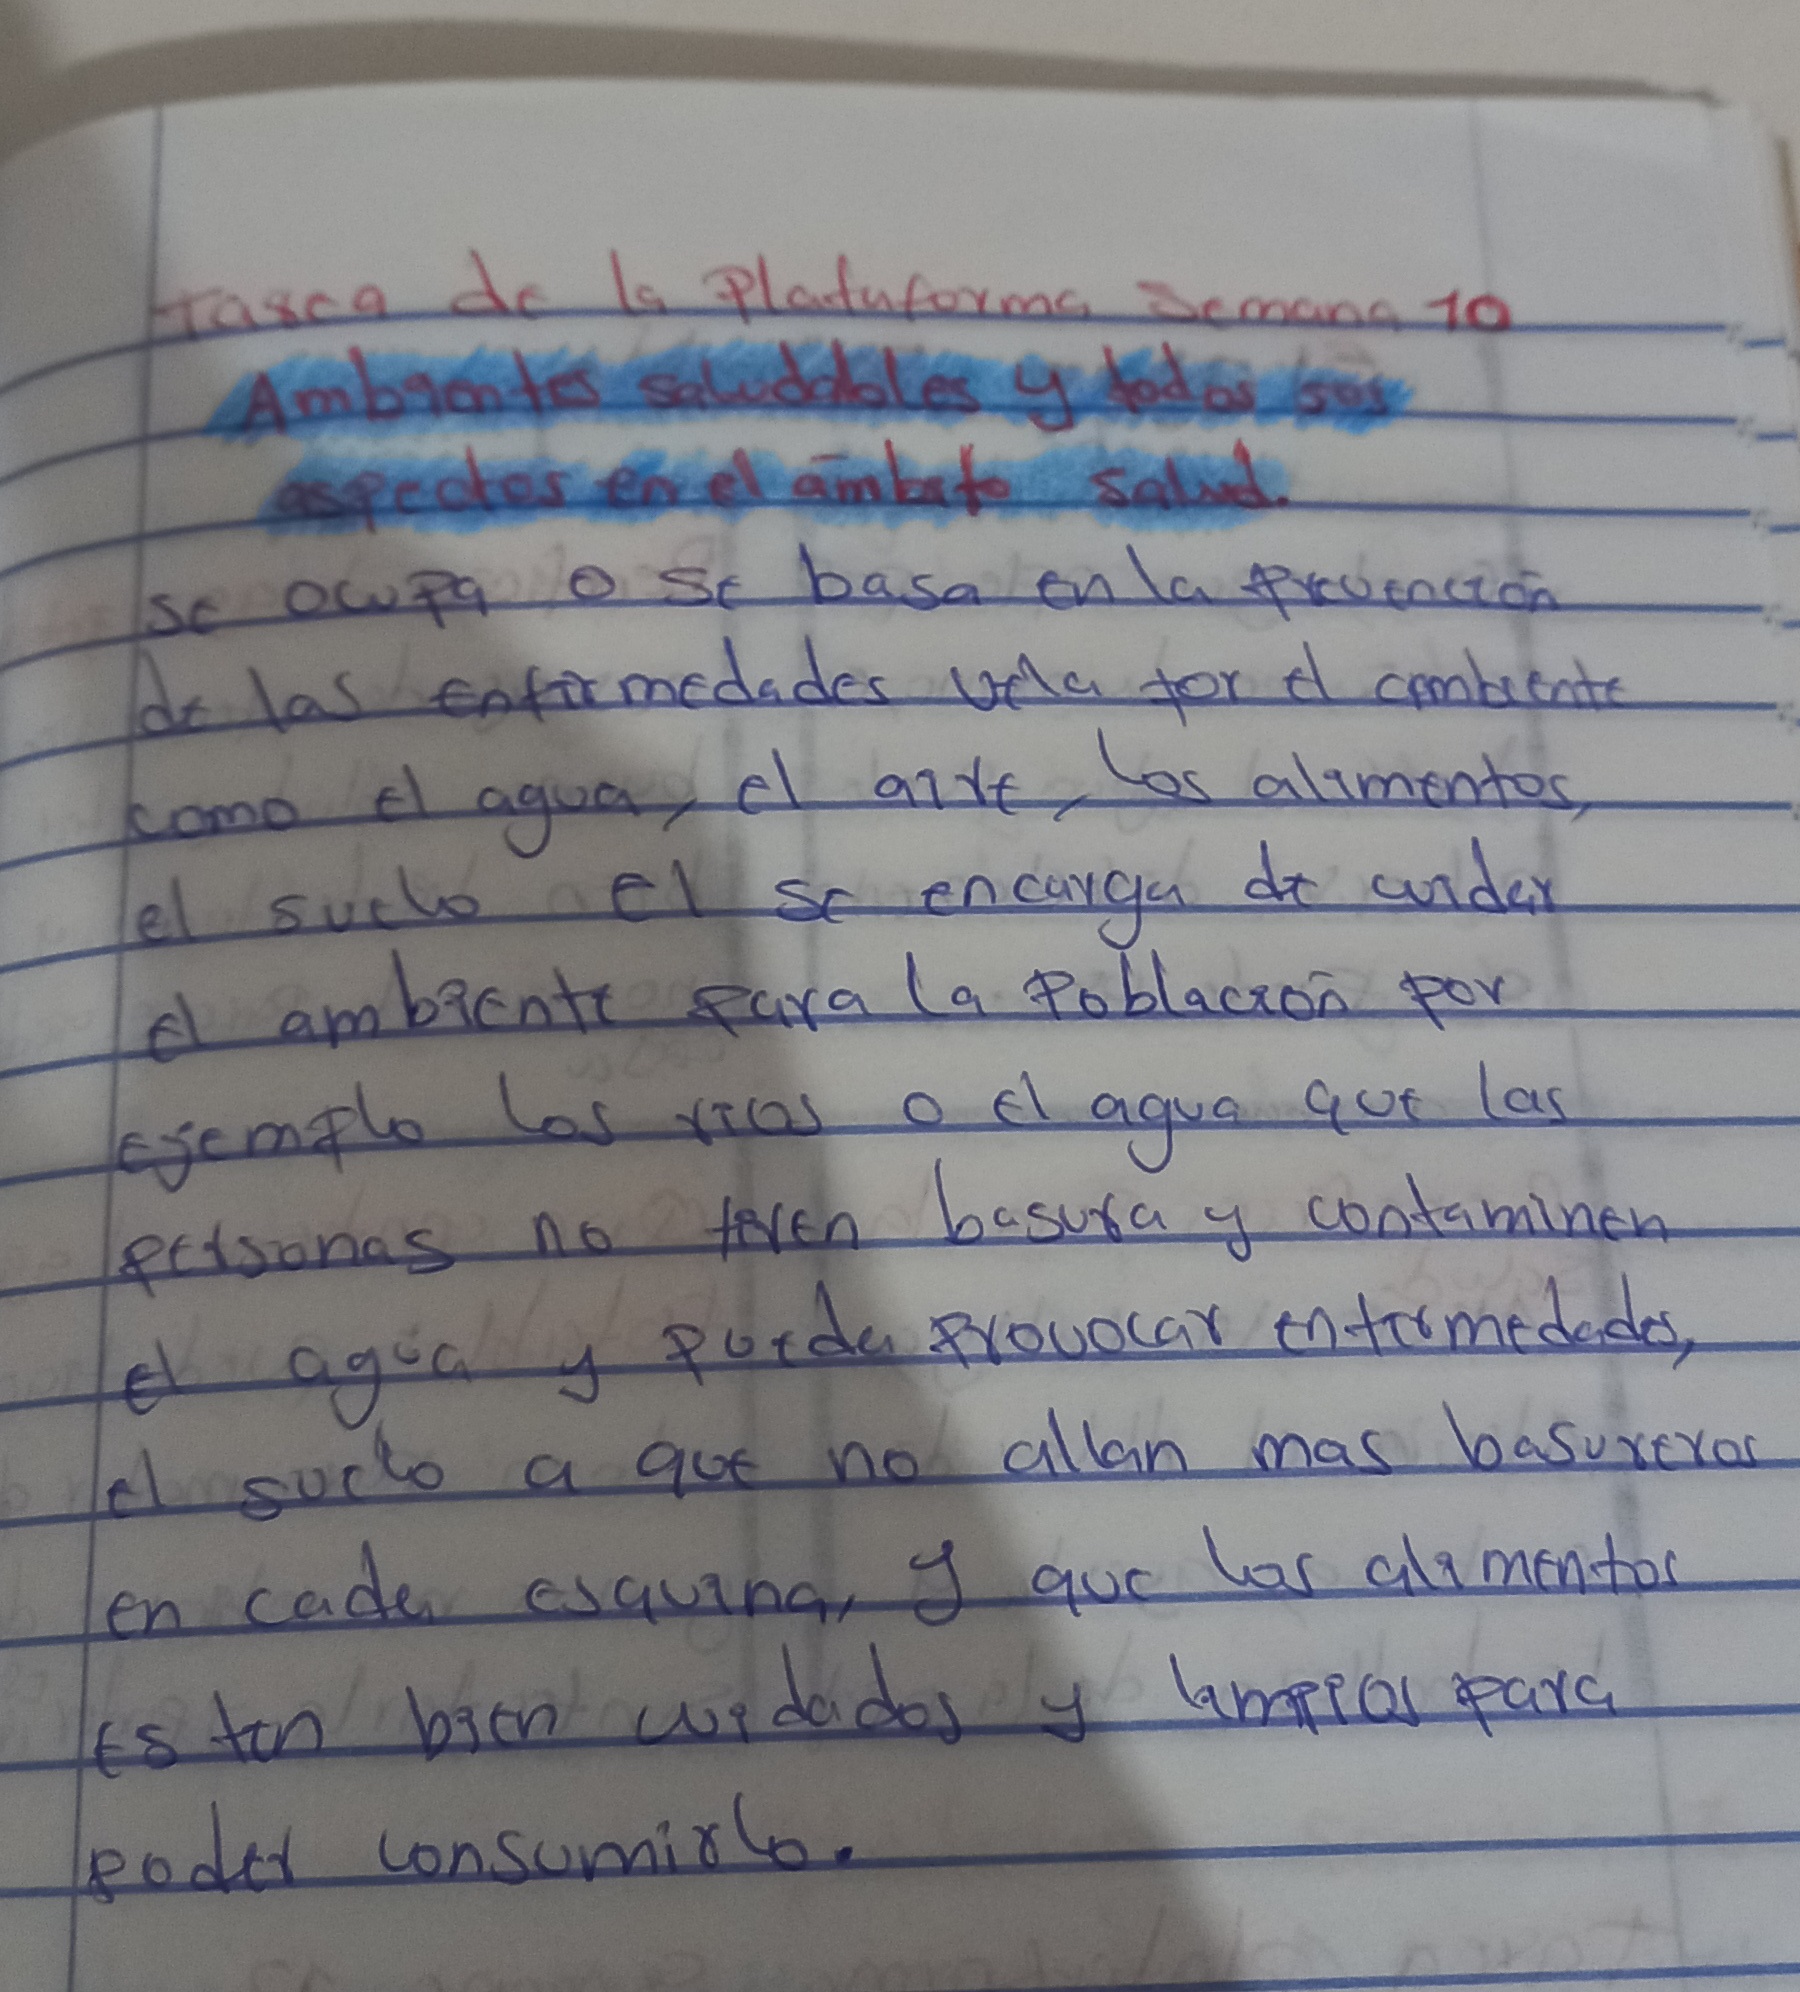 Tarea de la Platuforma Semana 10
Ambientes saludables y todos sus
aspectos en el ámbito salud.
se ocupa o se basa en la prevención
de las enfermedades vela por el ambiente
como el agua, el aire, los alimentos,
el suelo El se encarga de cuidar
el ambiente para la Población por
ejemplo los rios o el agua que las
personas no tiren basura y contaminen
el agua y pueda provocar enfermedades,
el suelo a que no allan mas basureros
en cada esquina, y que los alimentos
es ten bien cuidados y limpios para
poder consumirlo.